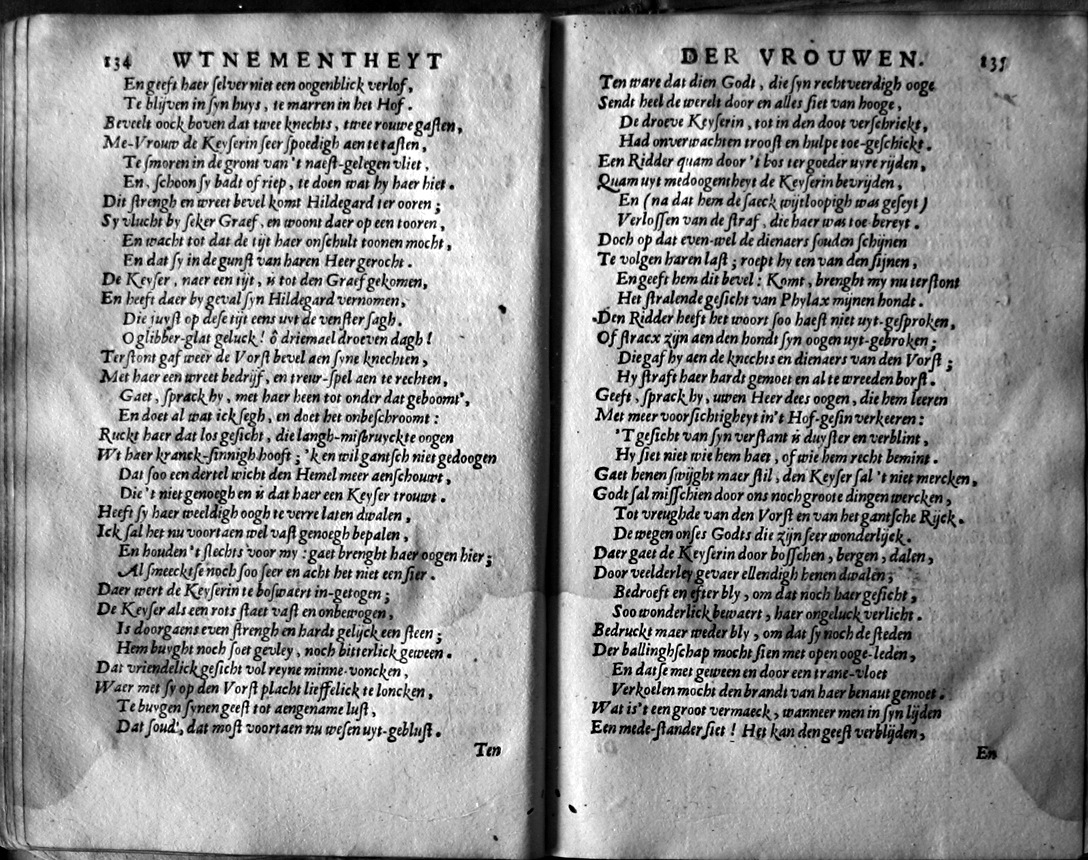 134 WTNEMENTHEYT
En geeft haer ſelver niet een oogenblick verlof,
Te blijven in ſyn huys, te marren in het Hof.
Beveelt oock boven dat twee knechts, twee rouwe gaſten,
Me-Vrouw de Keyſerin ſeer ſpoedigh aen te taſten,
Te ſmoren in de gront van 't naeſt-gelegen vliet,
En, ſchoon ſy badt of riep, te doen wat hy haer hiet.
Dit ſtrengh en wreet bevel komt Hildegard ter ooren;
Sy vlucht by ſeker Graef, en woont daer op een tooren,
En wacht tot dat de tijt haer onſchult toonen mocht,
En dat ſy in de gunſt van haren Heer gerocht.
De Keyſer, naer een tijt, is tot den Graef gekomen,
En heeft daer by geval ſyn Hildegard vernomen,
Die juyſt op deſe tijt eens uyt de venſter ſagh.
O glibber-glat geluck! ô driemael droeven dagh!
Terſtont gaf weer de Vorſt bevel aen ſyne knechten,
Met haer een wreet bedrijf, en treur-ſpel aen te rechten,
Gaet, ſprack hy, met haer heen tot onder dat geboomt',
En doet al wat ick ſegh, en doet het onbeſchroomt:
Ruckt haer dat los geſicht, die langh-miſbruyckte oogen
Wt haer kranck-ſinnigh hooft; 'k en wil gantſch niet gedoogen
Dat ſoo een dertel wicht den Hemel meer aenſchouwt,
Die 't niet genoegh en is dat haer een Keyſer trouwt.
Heeft ſy haer weeldigh oogh te verre laten dwalen,
Ick ſal het nu voortaen wel vaſt genoegh bepalen,
En houden 't ſlechts voor my: gaet brenght haer oogen hier;
Al ſmeecktſe noch ſoo ſeer en acht het niet een ſier.
Daer wert de Keyſerin te boſwaert in-getogen;
De Keyſer als een rots ſtaet vaſt en onbewogen,
Is doorgaens even ſtrengh en hardt gelijck een ſteen;
Hem buyght noch ſoet gevley, noch bitterlick geween.
Dat vriendelick geſicht vol reyne minne-voncken,
Waer met ſy op den Vorſt placht lieffelick te loncken,
Te buygen ſynen geeſt tot aengename luſt,
Dat ſoud', dat moſt voortaen nu weſen uyt-gebluſt.
Ten
DER VROUWEN. 135
Ten ware dat dien Godt, die ſyn rechtveerdigh ooge
Sendt heel de werelt door en alles ſiet van hooge,
De droeve Keyſerin, tot in den doot verſchrickt,
Had onverwachten trooſt en hulpe toe-geſchickt.
Een Ridder quam door 't bos ter goeder uyre rijden,
Quam uyt medoogentheyt de Keyſerin bevrijden,
En (na dat hem de ſaeck wijtloopigh was geſeyt)
Verloſſen van de ſtraf, die haer was toe-bereyt.
Doch op dat even-wel de dienaers ſouden ſchijnen
Te volgen haren laſt; roept hy een van den ſijnen,
En geeft hem dit bevel: Komt, brenght my nu terſtont
Het ſtralende geſicht van Phylax mijnen hondt.
Den Ridder heeft het woort ſoo haeſt niet uyt-geſproken,
Of ſtracx zijn aen den hondt ſyn oogen uyt-gebroken;
Die gaf hy aen de knechts en dienaers van den Vorſt;
Hy ſtraft haer hardt gemoet en al te wreeden borſt.
Geeft, ſprack hy, uwen Heer dees oogen, die hem leeren
Met meer voorſichtigheyt in't Hof-geſin verkeeren:
'T geſicht van ſyn verſtant is duyſter en verblint,
Hy ſiet niet wie hem haet, of wie hem recht bemint.
Gaet henen ſwijght maer ſtil, den Keyſer ſal 't niet mercken,
Godt ſal miſſchien door ons noch groote dingen wercken,
Tot vreughde van den Vorſt en van het gantſche Rijck.
De wegen onſes Godts die zijn ſeer wonderlijck.
Daer gaet de Keyſerin door boſſchen, bergen, dalen,
Door veelderley gevaer ellendigh henen dwalen;
Bedroeft en eſter bly, om dat noch haer geſicht,
Soo wonderlick bewaert, haer ongeluck verlicht.
Bedruckt maer weder bly, om dat ſy noch de ſteden
Der ballinghſchap mocht ſien met open ooge-leden,
En datſe met geween en door een trane-vloet
Verkoelen mocht den brandt van haer benaut gemoet.
Wat is't een groot vermaeck, wanneer men in ſyn lijden
Een mede-ſtander ſiet! Het kan den geeſt verblijden,
En